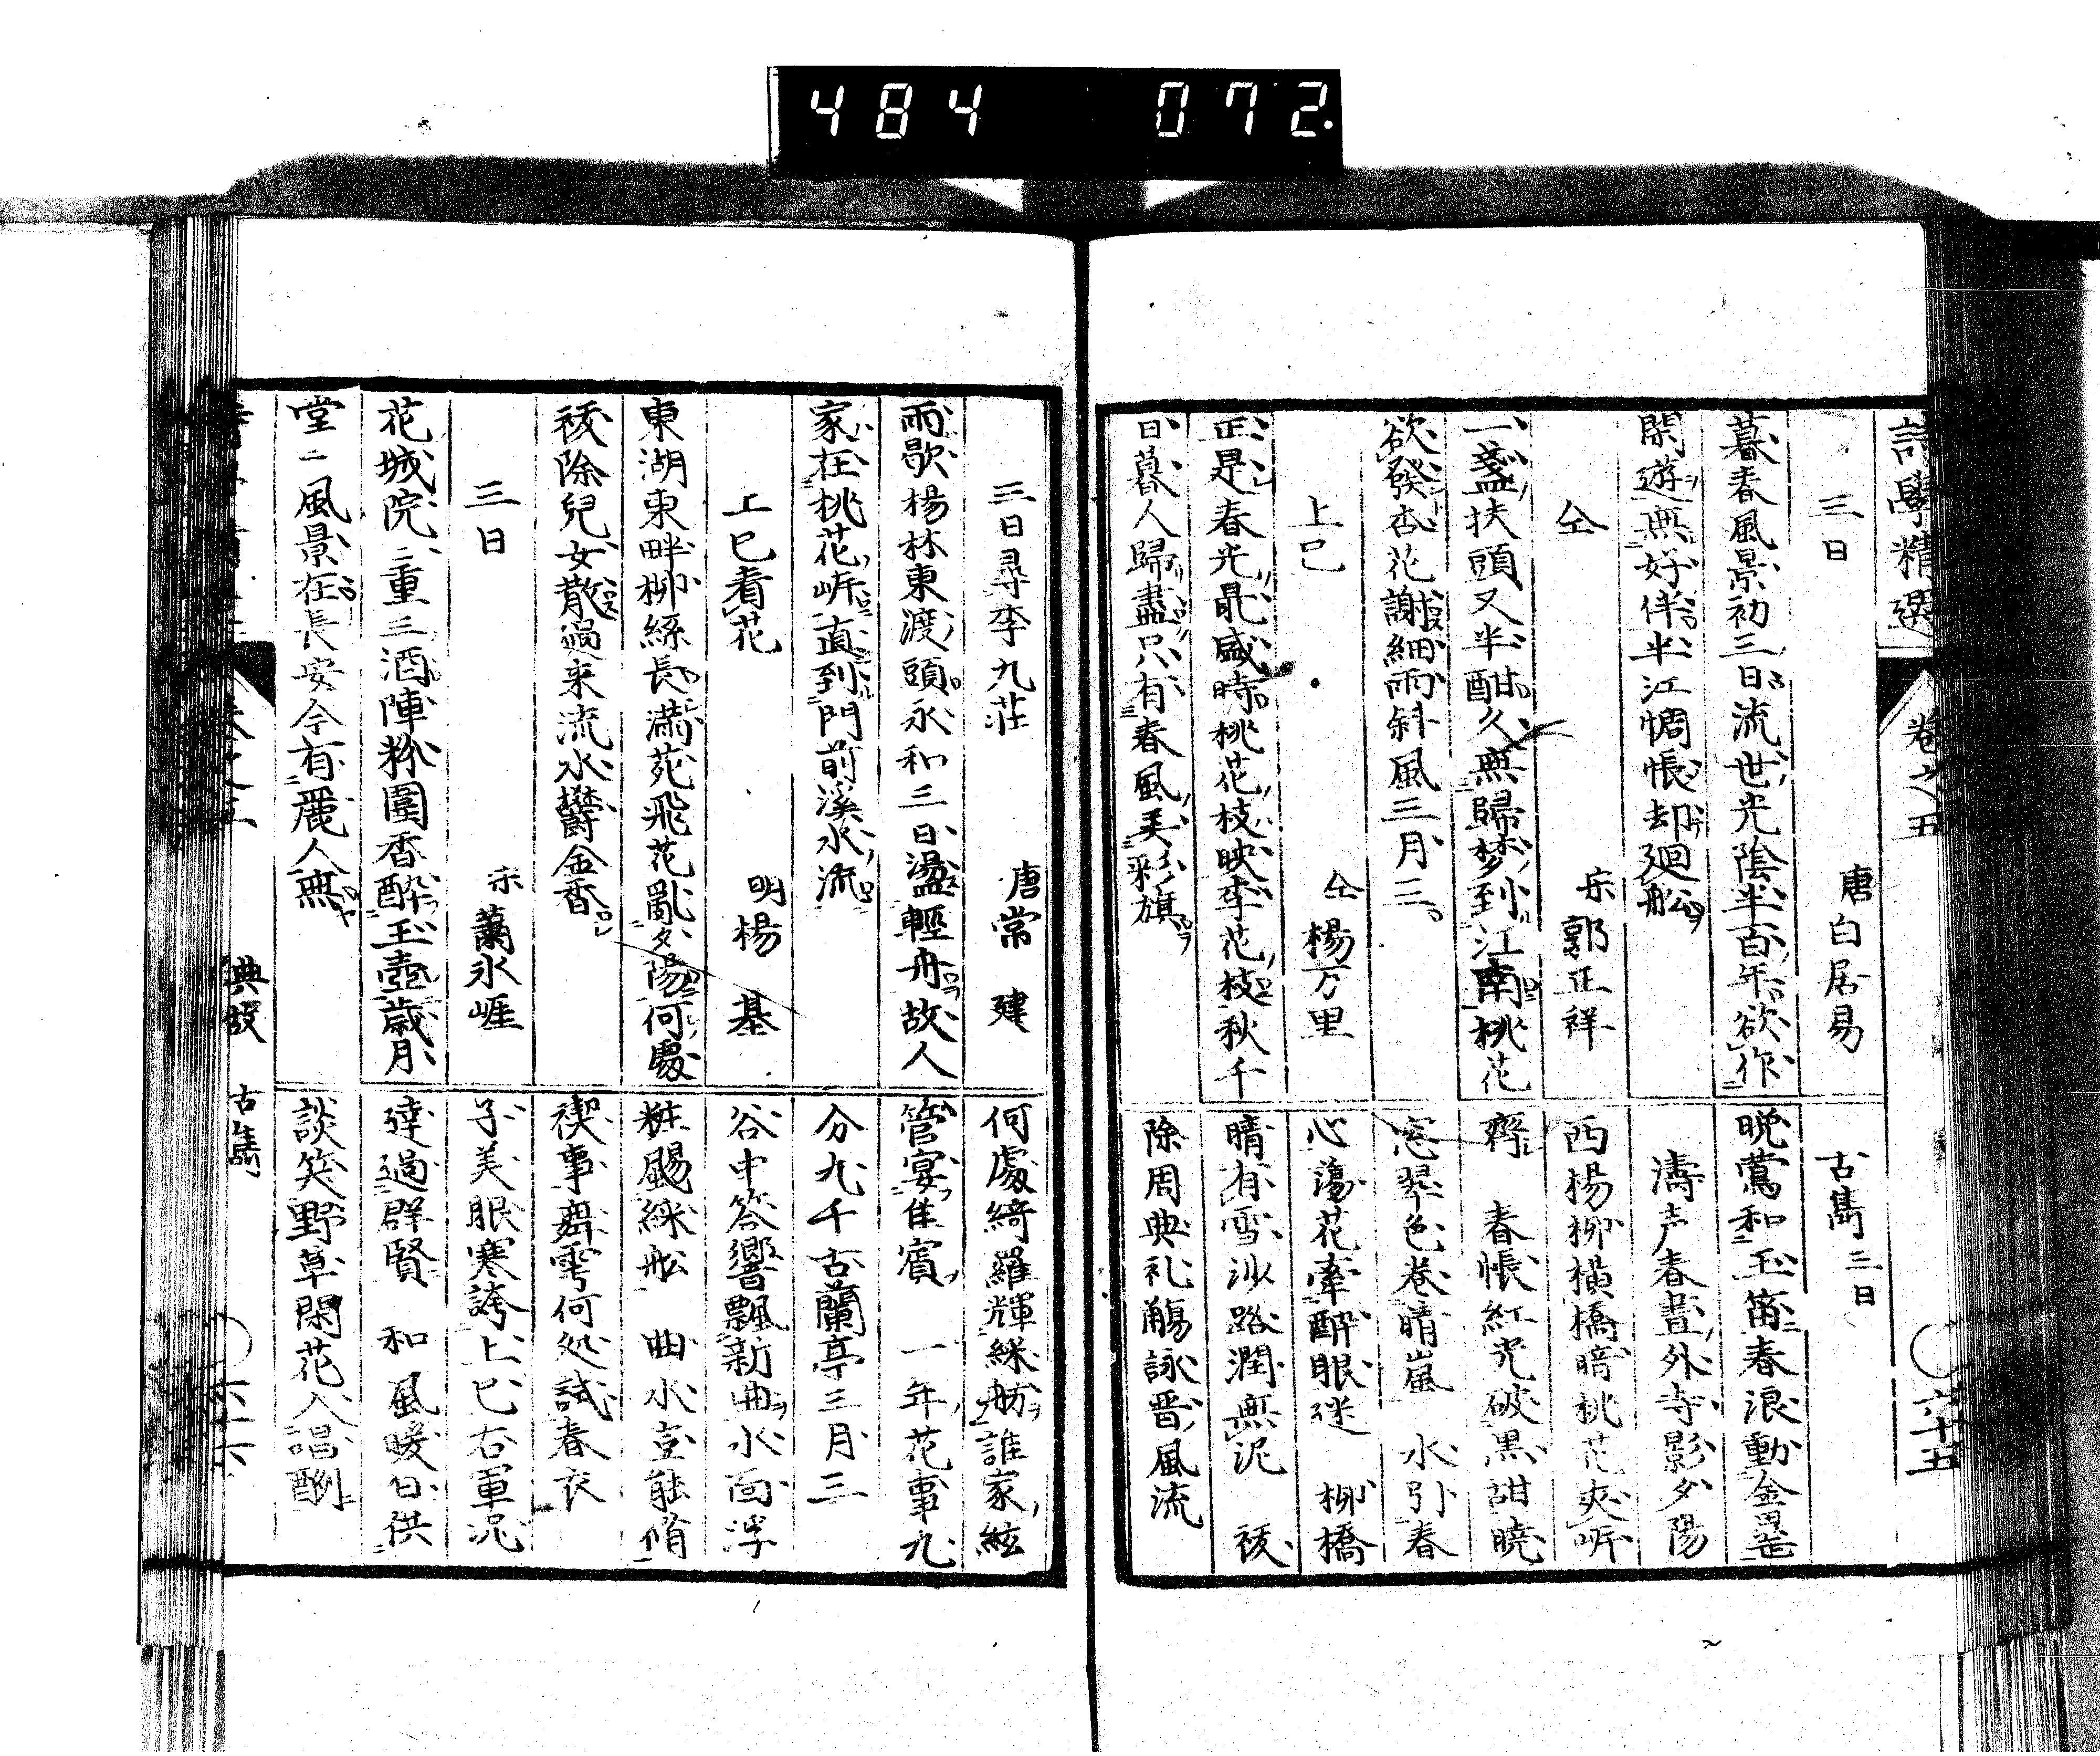 484 072.
詩學精選 卷之五 六十五
三日 唐白居易
暮春風景初三日流世光陰半百年欲作
閑遊無好伴半江惆悵却廻船
仝 宋郭正祥
一盞扶頭又半酣久無歸梦到江南桃花
欲發杏花謝細雨斜風三月三
上巳 仝楊万里
正是春光最盛時桃花枝映李花枝秋千
日暮人歸盡只有春風弄彩旗
古雋 三日
晩鶯和玉笛春浪動金罍
濤声春晝外寺影夕陽
西楊柳橫橋暗桃花夾岸
齊 春帳紅光破黒甜曉
窓翠色巻晴嵐 水引春
心蕩花牽醉眼迷 柳橋
晴有雪沙路潤無泥 祓
除周典礼觴詠晋風流
三日尋李九莊 唐常建
雨歇楊林東渡頭永和三日盪輕舟故人
家在桃花岸直到門前溪水流
上巳看花 明楊基
東湖東畔柳絲長滿苑飛花亂夕陽何處
祓除兒女散過来流水欝金香
三日 宋蕭氷崖
花城院二重三酒陣粉圍香酔玉壺歳月
堂二風景在長安今有麗人無
何處綺羅輝綵舫誰家絃
管宴佳賓 一年花事九
分九千古蘭亭三月三
谷中答響飄新曲水面浮
粧颺綵船 曲水豈能脩
禊事舞雩何処試春衣
子美眼寒誇上巳右軍沉
達過群賢 和風暖日供
談笑野草閑花入唱酬
卷之五 典故 古雋 六十六